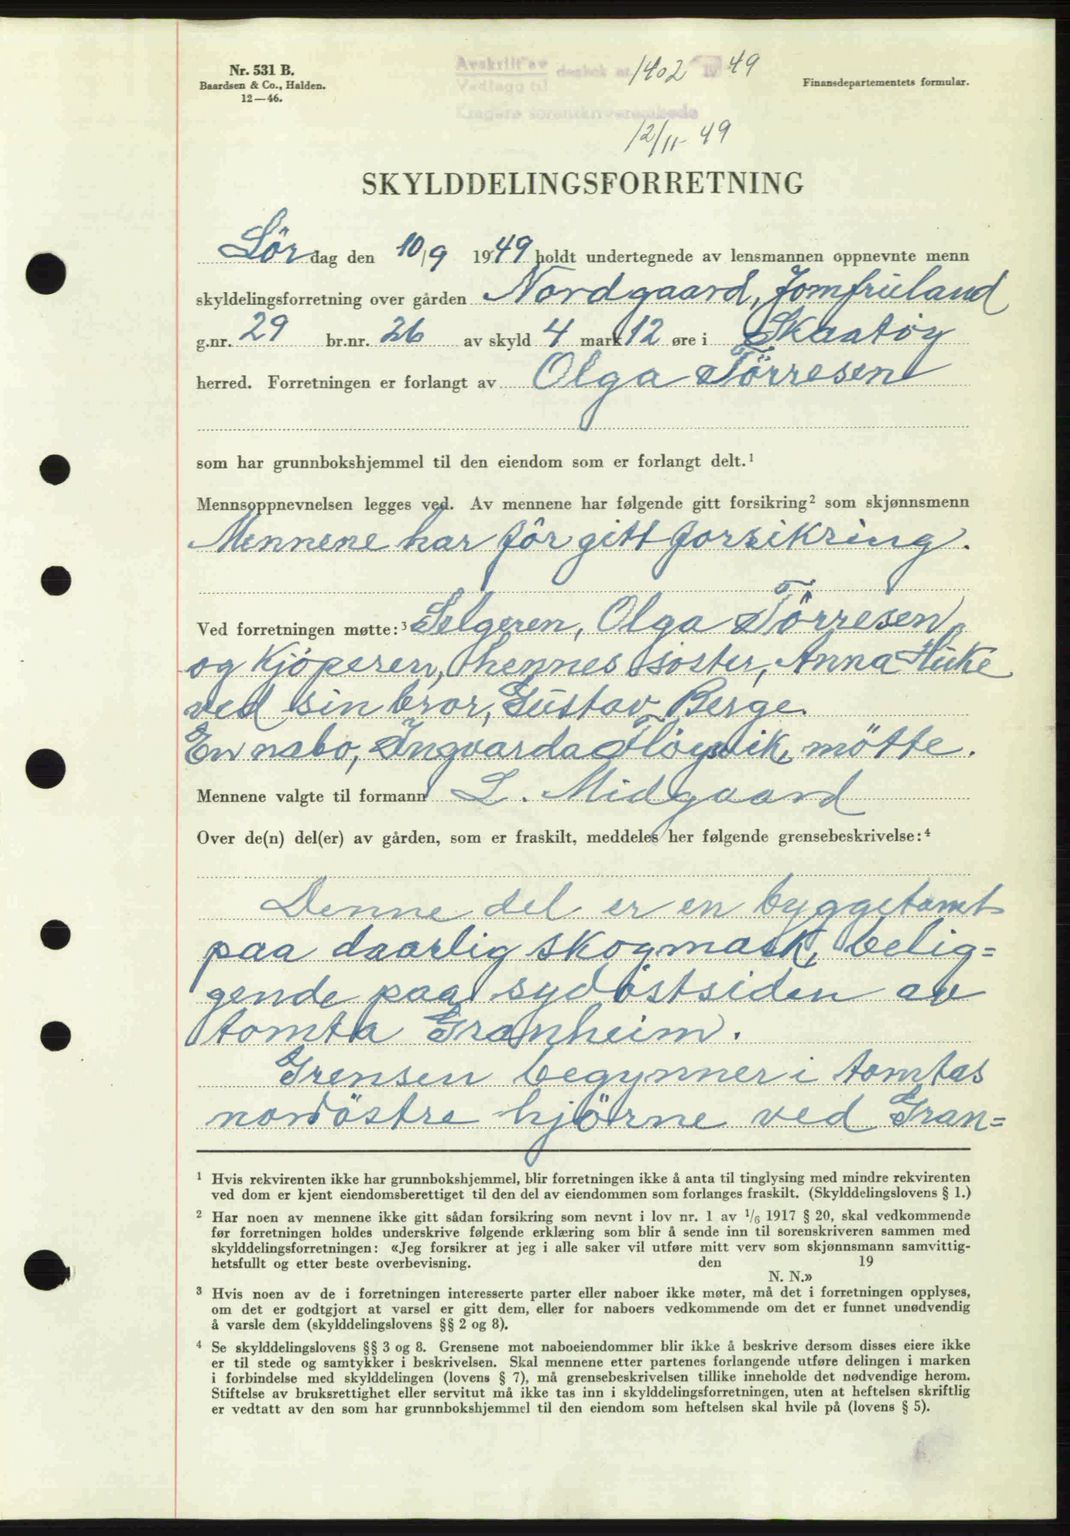 Nr. 531 B.
Baardsen & Co., Halden.
12—46.
Avskrift av
Vedlagg til
dagbok nr. 1402 19 49
Kragerø sorenskriverembede
12/11-49
Finansdepartementets formular.
SKYLDDELINGSFORRETNING
Lör dag den 10/9 1949 holdt undertegnede av lensmannen oppnevnte menn
skyldelingsforretning over gården Nordgaard, Jomfruland
g.nr. 29 br.nr. 26 av skyld 4 mark 12 øre i Skaatöy
herred. Forretningen er forlangt av Olga Törresen
som har grunnbokshjemmel til den eiendom som er forlangt delt.¹
Mennsoppnevnelsen legges ved. Av mennene har følgende gitt forsikring² som skjønnsmenn
Mennene har för gitt forsikring.
Ved forretningen møtte:³ Selgeren, Olga Törresen
og Kjöperen, hennes söster, Anna Huke
ved sin bror, Gustav Berge.
En nabo, Ingvarda Flöyvik, mötte.
Mennene valgte til formann L. Midgaard
Over de(n) del(er) av gården, som er fraskilt, meddeles her følgende grensebeskrivelse:⁴
Denne del er en byggetomt
paa daarlig skogmark, belig=
gende paa sydöstsiden av
tomta Granheim.
Grensen begynner i tomtas
nordöstre hjörne ved Gran=
¹ Hvis rekvirenten ikke har grunnbokshjemmel, blir forretningen ikke å anta til tinglysing med mindre rekvirenten
ved dom er kjent eiendomsberettiget til den del av eiendommen som forlanges fraskilt. (Skylddelingslovens § 1.)
² Har noen av mennene ikke gitt sådan forsikring som nevnt i lov nr. 1 av 1/6 1917 § 20, skal vedkommende
før forretningen holdes underskrive følgende erklæring som blir å sende inn til sorenskriveren sammen med
skylddelingsforretningen: «Jeg forsikrer at jeg i alle saker vil utføre mitt verv som skjønnsmann samvittig-
hetsfullt og etter beste overbevisning. den 19
N. N.»
³ Hvis noen av de i forretningen interesserte parter eller naboer ikke møter, må det i forretningen opplyses,
om det er godtgjort at varsel er gitt dem, eller for naboers vedkommende om det er funnet unødvendig
å varsle dem (skylddelingslovens §§ 2 og 8).
⁴ Se skylddelingslovens §§ 3 og 8. Grensene mot naboeiendommer blir ikke å beskrive dersom disses eiere ikke
er til stede og samtykker i beskrivelsen. Skal mennene etter partenes forlangende utføre delingen i marken
i forbindelse med skylddelingen (lovens § 7), må grensebeskrivelsen tillike inneholde det nødvendige herom.
Stiftelse av bruksrettighet eller servitut må ikke tas inn i skylddelingsforretningen, uten at heftelsen skriftlig
er vedtatt av den som har grunnbokshjemmel til den eiendom som heftelsen skal hvile på (lovens § 5).